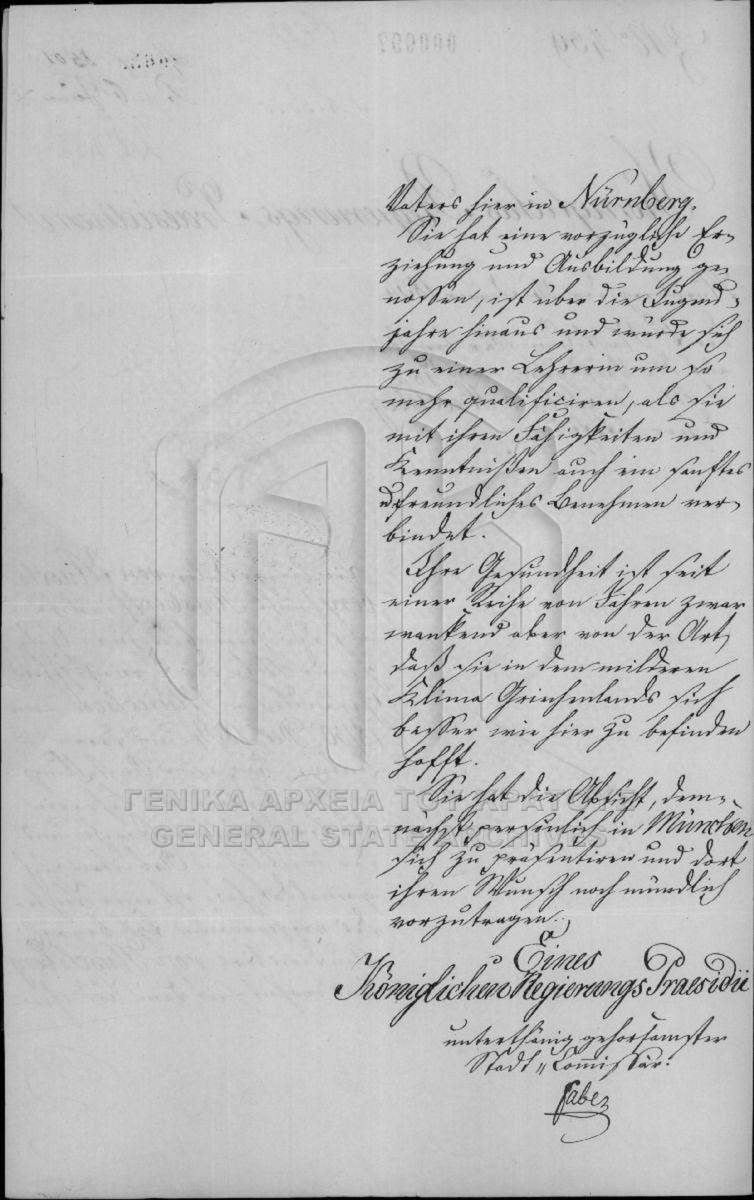 Vaters hier in Nürnberg.
Sie hat eine vorzügliche Er-
ziehung und Ausbildung ge-
nossen, ist über die Jugend-
jahre hinaus und würde sich
zu einer Lehrerin um so
mehr qualificiren, als sie
mit ihren Fähigkeiten und
Kenntnißen auch ein sanftes
u. freundliches Benehmen ver-
bindet.
Ihre Gesundheit ist seit
einer Reihe von Jahren zwar
wankend aber von der Art,
daß sie in dem milderen
Klima Griechenlands sich
besser wie hier zu befinden
hofft.
Sie hat die Absicht, dem-
nächst persönlich in München
sich zu präsentiren und dort
ihren Wunsch noch mündlich
vorzutragen.
Eines
Königlichen Regierungs Praesidii
unterthänig gehorsamster
Stadt-Commissär.
Faber
ΓΕΝΙΚΑ ΑΡΧΕΙΑ ΤΟΥ ΚΡΑΤΟΥΣ
GENERAL STATE ARCHIVES